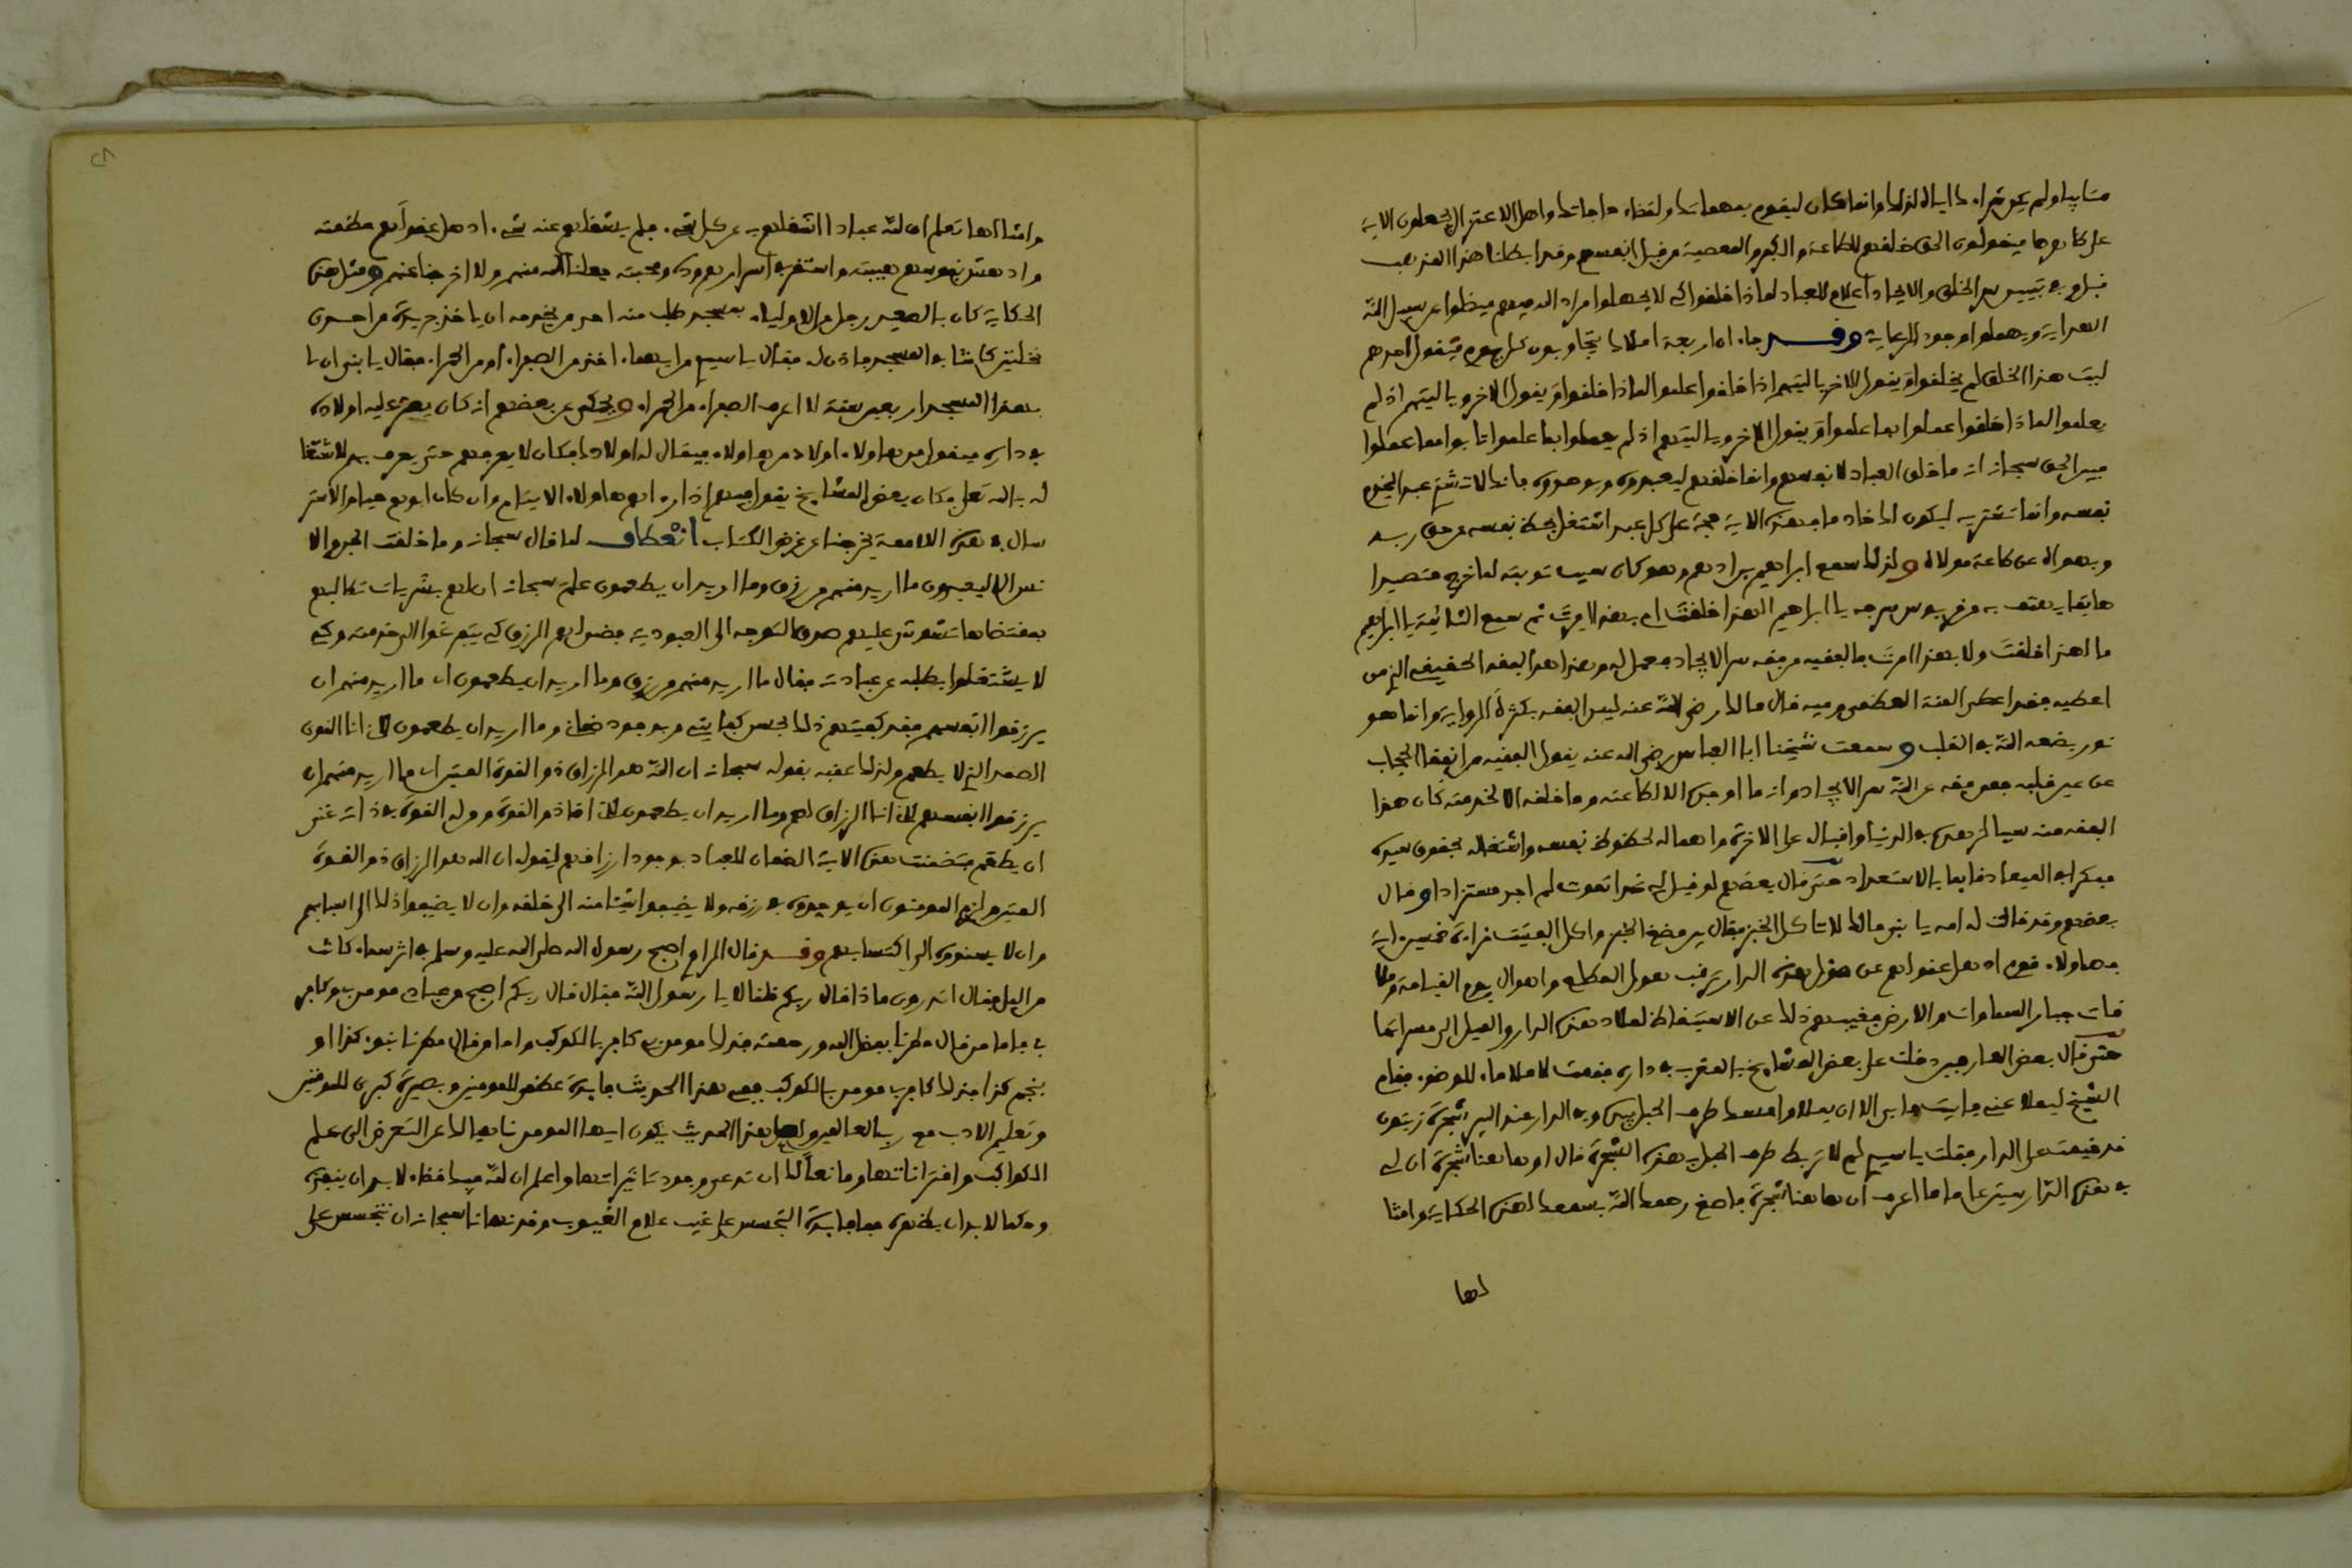 متاهبا ولم يكن شراء ذاك الا لذلك وانما كان ليقوم بمهماتك ولقضاء حاجاتك واهل الاعتزال يجعلون الاية
على ظاهرها فيقولون الحق خلقهم للطاعة والكفر والمعصية من قبل انفسهم وقد ابطلنا هذا المذهب
قبل وفي تبيين سر الخلق والايجاد اعلام للعباد لماذا خلقوا كي لا يجهلوا مراد الله فيهم فيضلوا عن سبيل
الهداية ويهملوا وجود الرعاية وقد جاء ان اربعة املاك يتجاوبون كل يوم فيقول احدهم
ليت هذا الخلق لم يخلقوا ويقول الاخر يا ليتهم اذ خلقوا علموا لماذا خلقوا ويقول الاخر ويا ليتهم اذ لم
يعلموا لماذا خلقوا عملوا بما علموا ويقول الاخر ويا ليتهم اذ لم يعملوا بما علموا تابوا مما عملوا
فبين الحق سبحانه انه ما خلق العباد لانفسهم وانما خلقهم ليعبدوه ويوحدوه فانك لا تشتري عبدا ليخدم
نفسه وانما تشتريه ليكون لك خادما فهذه الاية حجة على كل عبد اشتغل بحظ نفسه عن حق ربه
وبهواه عن طاعة مولاه ولذلك سمع ابراهيم بن ادهم وهو كان سبب توبته لما خرج متصيدا
هاتفا يهتف به من قربوس سرجه يا ابراهيم الهذا خلقت ام بهذا امرت ثم سمع الثانية يا ابراهيم
ما لهذا خلقت ولا بهذا امرت فالفقيه من فقه سر الايجاد فعمل له وهذا هو الفقه الحقيقي الذي من
اعطيه فقد اعطي المنة العظمى وفيه قال مالك رضي الله عنه ليس الفقه بكثرة الرواية وانما هو
نور يضعه الله في القلب وسمعت شيخنا ابا العباس رضي الله عنه يقول الفقيه من انفقا الحجاب
عن عين قلبه فمن فقه عن الله سر الايجاد وانه ما اوجده الا لطاعته وما خلقه الا لخدمته كان هذا
الفقه منه سببا لزهده في الدنيا واقباله على الاخرة واهماله لحظوظ نفسه واشتغاله بحقوق سيده
مفكرا في الميعاد قايما بالاستعداد حتى قال بعضهم لو قيل لي غدا تموت لم اجد مستزادا وقال
بعضهم وقد قالت له امه يا بني مالك لا تاكل الخبز فقال بين مضغ الخبز واكل الفتيت قراءة خمسين اية
فهاولاء قوم اذهل عقولهم عن هذه الدار ترقب هول المطلع واهوال يوم القيامة وملا
قات جبار السماوات والارض فغيبهم ذلك عن الاستيقاظ لملاذ هذه الدار والميل الى مسراتها
حتى قال بعض العارفين دخلت على بعض المشايخ بالمغرب في داره فقمت لاملا ماء للوضوء فقام
الشيخ ليملا عني فابيت فابى الا ان يملا وامسك طرف الحبل بيده وفي الدار عند البير شجرة زيتون
قد خيمت على الدار فقلت يا سيدي لم لا تربط طرف الحبل في هذه الشجرة قال اوها هنا شجرة ان لي
في هذه الدار ستين عاما ما اعرف ان ها هنا شجرة فاصغ رحمك الله بسمعك لهذه الحكاية وامثا
لها
وامثالها تعلم ان لله عبادا اشغلهم به عن كل شيء فلم يشغلهم عنه شيء اذهل عقولهم عظمته
وادهش نفوسهم هيبته واستقر في اسرارهم وده ومحبته جعلنا الله منهم ولا اخرجنا عنهم ومثل هذه
الحكاية كان بالصعيد رجل من الاولياء بمسجد طلب منه احد من يخدمه ان ياخذ جريدة من احدى
نخلتين كانتا في المسجد فاذن له فقال يا سيدي من ايهما اخذ من الصفراء او من الحمراء فقال يا بني ان لي
بهذا المسجد اربعين سنة لا اعرف الصفراء من الحمراء ويحكى عن بعضهم انه كان يعبر عليه اولاده
في داره فيقول من هاولاء اولاد من هاولاء فيقال له اولادك فكان لا يعرفهم حتى يعرف بهم لاشتغا
له بالله تعالى وكان بعض المشايخ يقول فيهم اذا راهم هاولاء الايتام وان كان ابوهم حيا والاستر
سال في هذه اللامعة يخرجنا عن غرض الكتاب انعطاف لما قال سبحانه وما خلقت الجن والا
نس الا ليعبدون ما اريد منهم من رزق وما اريد ان يطعمون علم سبحانه ان لهم بشريات تطالبهم
بمقتضاها تشوش عليهم صدق التوجه الى العبودية فضمن لهم الرزق كي يتفرغوا الى خدمته وكي
لا يشتغلوا بطلبه عن عبادته فقال ما اريد منهم من رزق وما اريد ان يطعمون اي ما اريد منهم ان
يرزقوا انفسهم فقد كفيتهم ذلك بحسن كفايتي وبوجود ضماني وما اريد ان يطعمون لاني انا القوي
الصمد الذي لا يطعم ولذلك عقبه بقوله سبحانه ان الله هو الرزاق ذو القوة المتين اي ما اريد منهم ان
يرزقوا انفسهم لاني انا الرزاق لهم وما اريد ان يطعمون لاني انا ذو القوة ومن له القوة في ذاته غني
ان يطعم فتضمنت هذه الاية الضمان للعباد بوجود ارزاقهم لقوله ان الله هو الرزاق ذو القوة
المتين والزم المومنين ان يوحدوه في رزقه ولا يضيفوا شيئا منه الى خلقه وان لا يضيفوا ذلك الى اسبابهم
وان لا يسندوه الى اكتسابهم وقد قال الراوي اصبح رسول الله صلى الله عليه وسلم في اثر سماء كانت
من اليل فقال اتدرون ماذا قال ربكم قلنا لا يا رسول الله فقال قال ربكم اصبح من عبادي مومن بي وكافر
بي فاما من قال مطرنا بفضل الله ورحمته فذلك مومن بي كافر بالكوكب واما من قال مطرنا بنوء كذا او
بنجم كذا فذلك كافر بي مومن بالكوكب ففي هذا الحديث فايدة عظمى للمومنين وبصيرة كبرى للموقنين
وتعليم الادب مع رب العالمين ولعل هذا الحديث يكون ايها المومن ناهيا لك عن التعرض الى علم
الكواكب واقتراناتها ومانعا لك ان تدعي وجود تاثيراتها واعلم ان لله فيك قضاء لا بد ان ينفذه
وحكما لا بد ان يظهره فما فايدة التجسس على غيب علام الغيوب وقد نهانا سبحانه ان نتجسس على